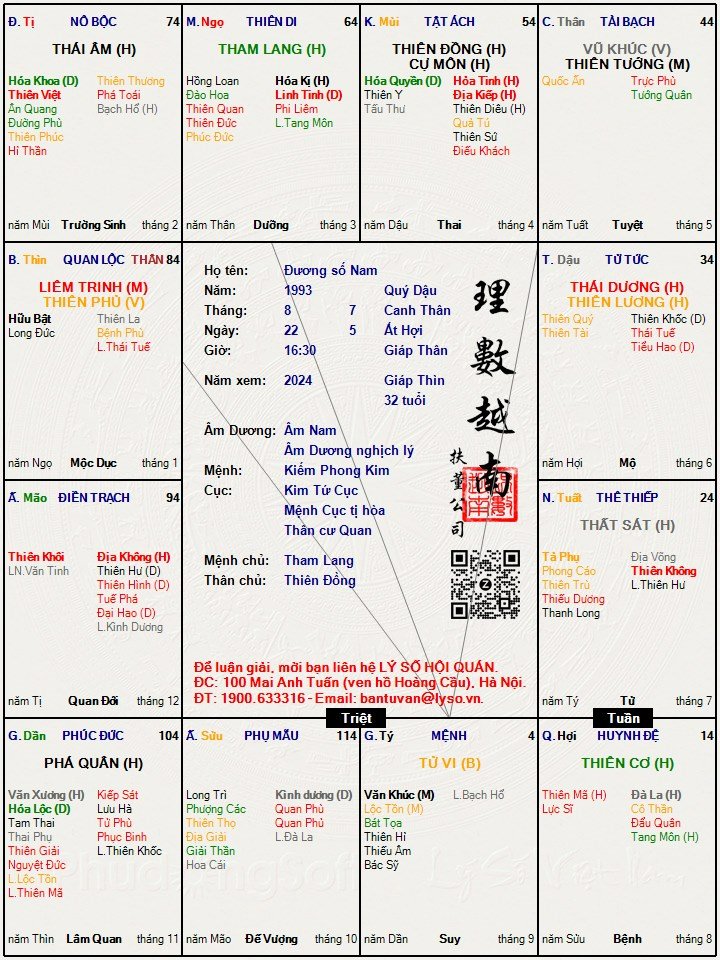 Đ. Tị NÔ BỘC 74
THÁI ÂM (H)
Hóa Khoa (D) Thiên Thương
Thiên Việt Phá Toái
Ân Quang Bạch Hổ (H)
Đường Phù
Thiên Phúc
Hỉ Thần
năm Mùi Trường Sinh tháng 2
M. Ngọ THIÊN DI 64
THAM LANG (H)
Hồng Loan Hóa Kị (H)
Đào Hoa Linh Tinh (D)
Thiên Quan Phi Liêm
Thiên Đức L.Tang Môn
Phúc Đức
năm Thân Dưỡng tháng 3
K. Mùi TẬT ÁCH 54
THIÊN ĐỒNG (H)
CỰ MÔN (H)
Hóa Quyền (D) Hỏa Tinh (H)
Thiên Y Địa Kiếp (H)
Tấu Thư Thiên Diêu (H)
Quả Tú
Thiên Sứ
Điếu Khách
năm Dậu Thai tháng 4
C. Thân TÀI BẠCH 44
VŨ KHÚC (V)
THIÊN TƯỚNG (M)
Quốc Ấn Trực Phù
Tướng Quân
năm Tuất Tuyệt tháng 5
B. Thìn QUAN LỘC THÂN 84
LIÊM TRINH (M)
THIÊN PHỦ (V)
Hữu Bật Thiên La
Long Đức Bệnh Phù
L.Thái Tuế
năm Ngọ Mộc Dục tháng 1
Họ tên: Đương số Nam
Năm: 1993 Quý Dậu
Tháng: 8 7 Canh Thân
Ngày: 22 5 Ất Hợi
Giờ: 16:30 Giáp Thân
Năm xem: 2024 Giáp Thìn
32 tuổi
Âm Dương: Âm Nam
Âm Dương nghịch lý
Mệnh: Kiếm Phong Kim
Cục: Kim Tứ Cục
Mệnh Cục tị hòa
Thân cư Quan
Mệnh chủ: Tham Lang
Thân chủ: Thiên Đồng
理數越南
扶董公司
Để luận giải, mời bạn liên hệ LÝ SỐ HỘI QUÁN.
ĐC: 100 Mai Anh Tuấn (ven hồ Hoàng Cầu), Hà Nội.
ĐT: 1900.633316 - Email: bantuvan@lyso.vn.
T. Dậu TỬ TỨC 34
THÁI DƯƠNG (H)
THIÊN LƯƠNG (H)
Thiên Quý Thiên Khốc (D)
Thiên Tài Thái Tuế
Tiểu Hao (D)
năm Hợi Mộ tháng 6
Ấ. Mão ĐIỀN TRẠCH 94
Thiên Khôi Địa Không (H)
LN.Văn Tinh Thiên Hư (D)
Thiên Hình (D)
Tuế Phá
Đại Hao (D)
L.Kình Dương
năm Tị Quan Đới tháng 12
N. Tuất THÊ THIẾP 24
THẤT SÁT (H)
Tả Phụ Địa Võng
Phong Cáo Thiên Không
Thiên Trù L.Thiên Hư
Thiếu Dương
Thanh Long
năm Tý Tử tháng 7
Triệt
Tuần
G. Dần PHÚC ĐỨC 104
PHÁ QUÂN (H)
Văn Xương (H) Kiếp Sát
Hóa Lộc (D) Lưu Hà
Tam Thai Tử Phù
Thai Phụ Phục Binh
Thiên Giải L.Thiên Khốc
Nguyệt Đức
L.Lộc Tồn
L.Thiên Mã
năm Thìn Lâm Quan tháng 11
Ấ. Sửu PHỤ MẪU 114
Long Trì Kình dương (D)
Phượng Các Quan Phù
Thiên Thọ Quan Phủ
Địa Giải L.Đà La
Giải Thần
Hoa Cái
năm Mão Đế Vượng tháng 10
G. Tý MỆNH 4
TỬ VI (B)
Văn Khúc (M) L.Bạch Hổ
Lộc Tồn (M)
Bát Tọa
Thiên Hỉ
Thiếu Âm
Bác Sỹ
năm Dần Suy tháng 9
Q. Hợi HUYNH ĐỆ 14
THIÊN CƠ (H)
Thiên Mã (H) Đà La (H)
Lực Sĩ Cô Thần
Đẩu Quân
Tang Môn (H)
năm Sửu Bệnh tháng 8